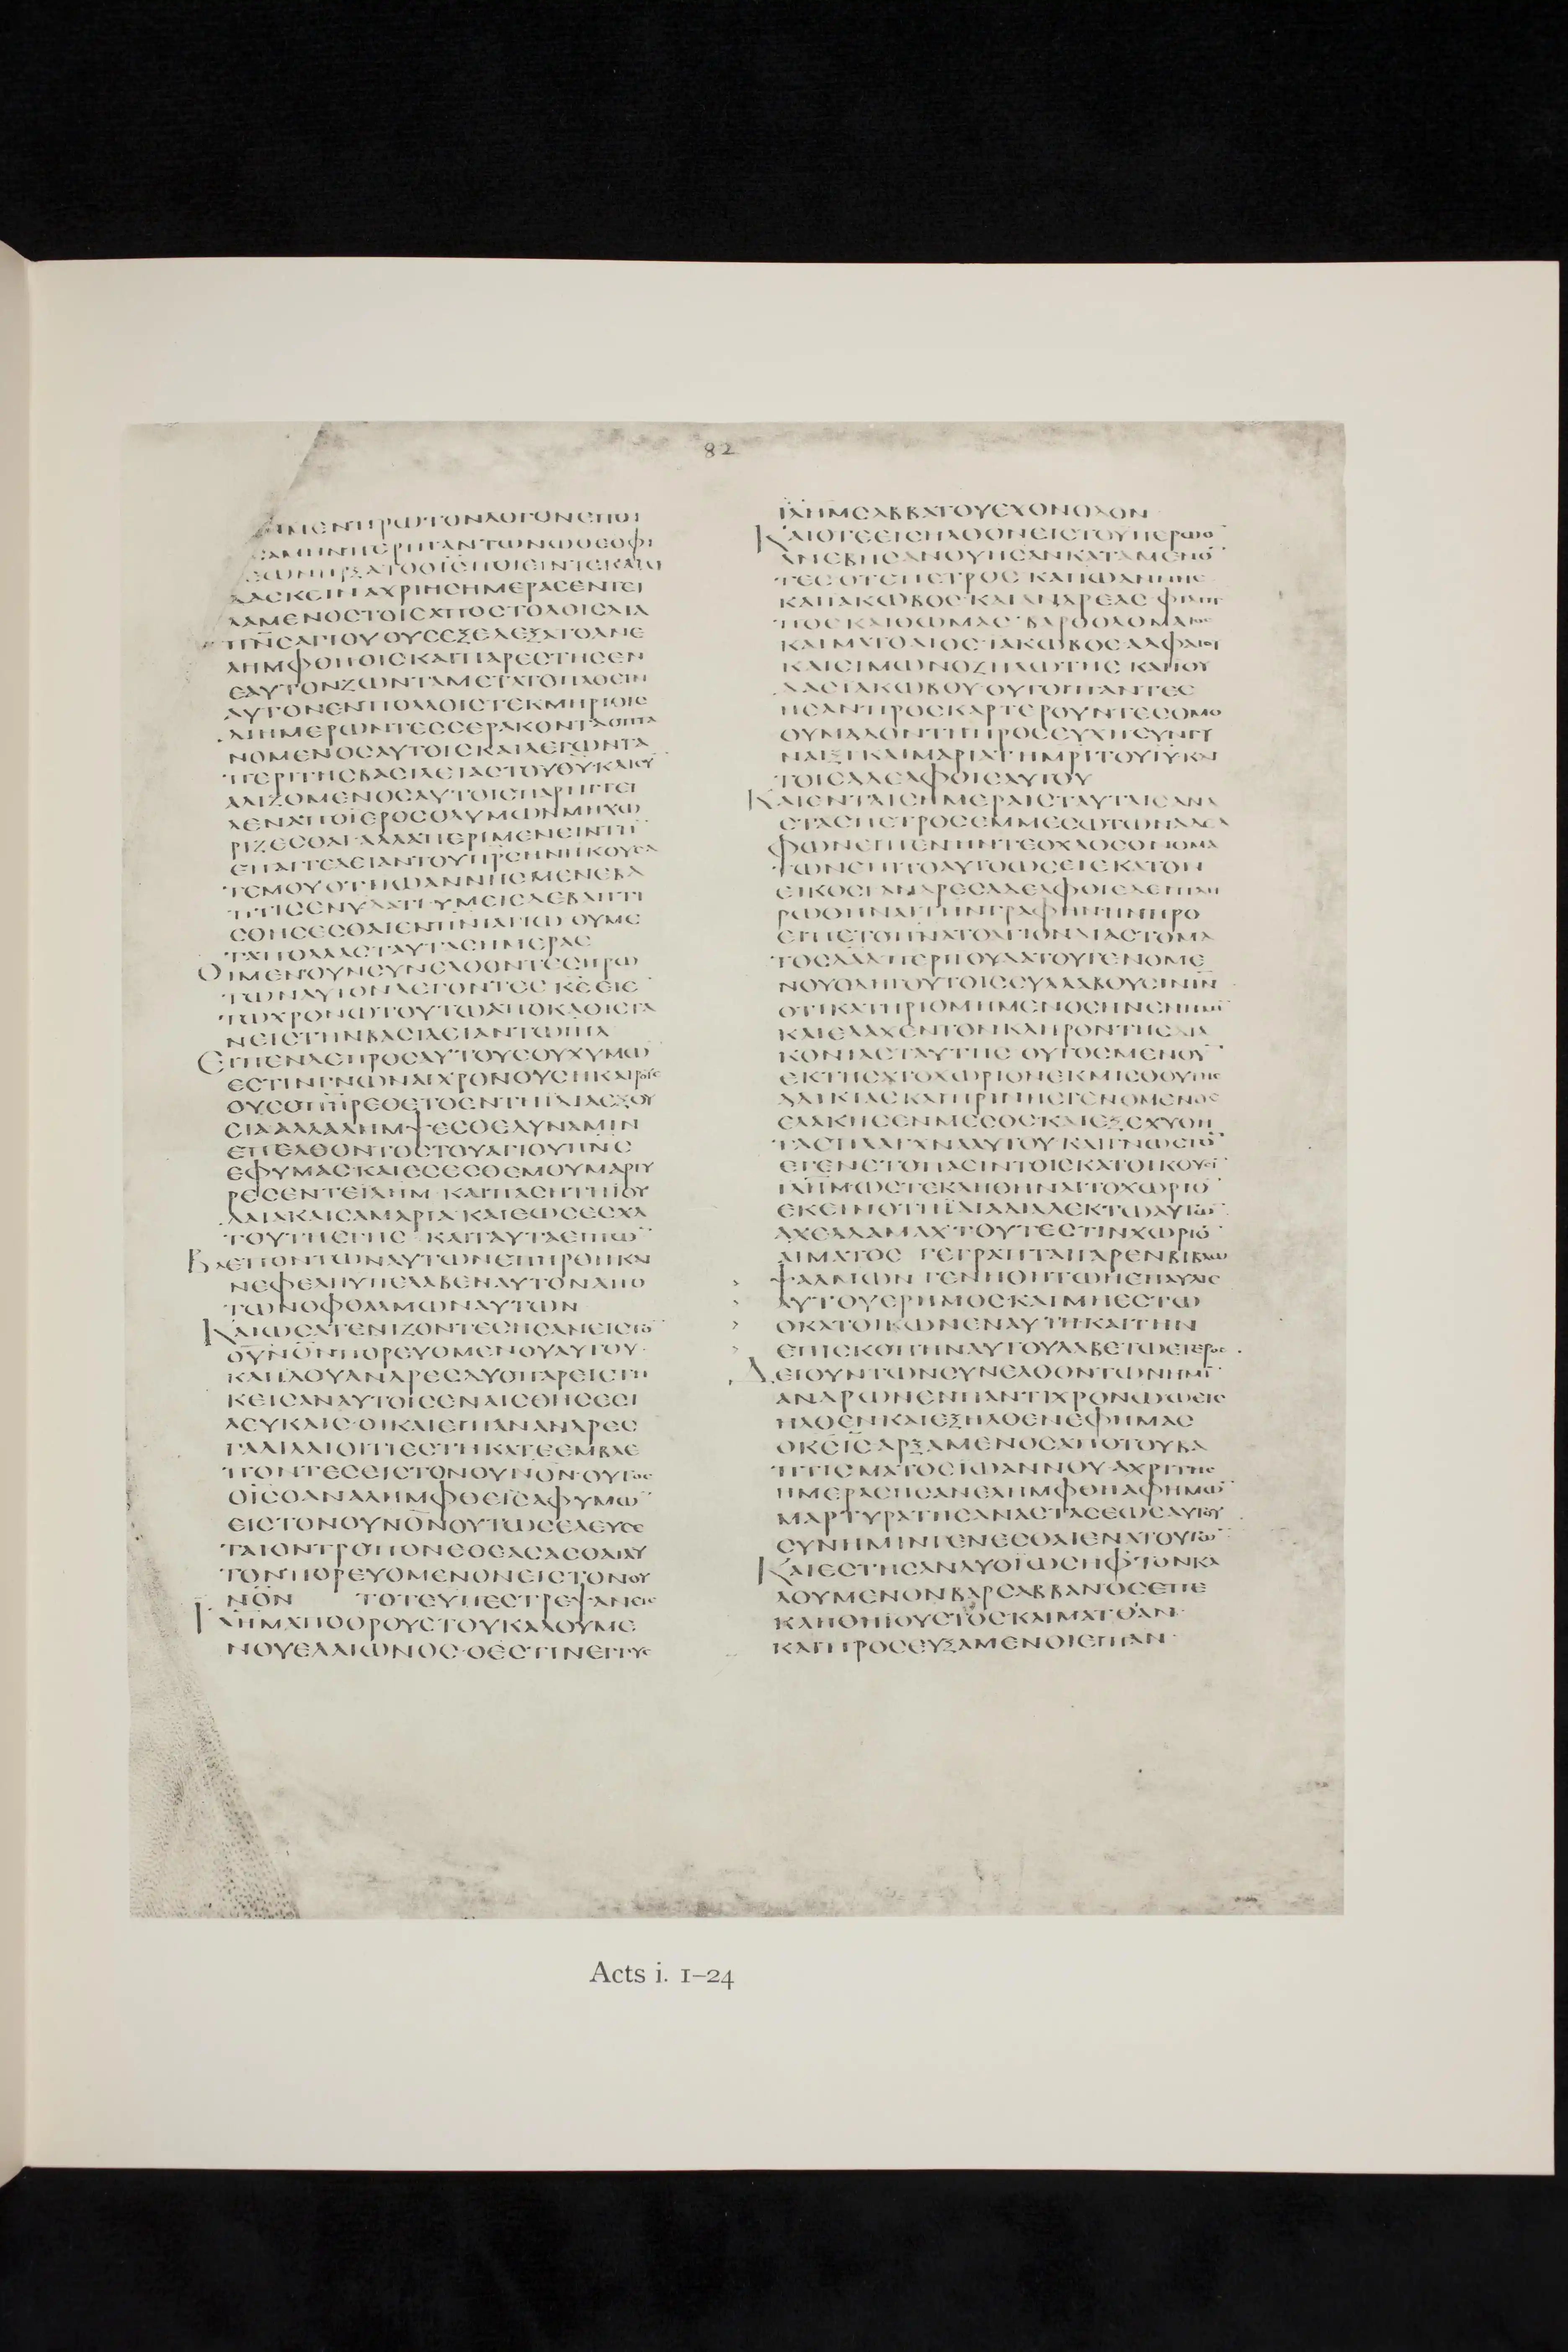 82
ΜΕΝΠΡΩΤΟΝΛΟΓΟΝΕΠΟΙ
CΑΜΗΝΠΕΡΙΠΑΝΤΩΝΩΘΕΟΦΙ
ΕΩΝΗΡΞΑΤΟΟΙ̅C̅ΠΟΙΕΙΝΤΕΚΑΙΔΙ
ΔΑCΚΕΙΝΑΧΡΙΗCΗΜΕΡΑCΕΝΤΕΙ
ΛΑΜΕΝΟCΤΟΙCΑΠΟCΤΟΛΟΙCΔΙΑ
Π̅Ν̅C̅ΑΓΙΟΥΟΥCΕΞΕΛΕΞΑΤΟΑΝΕ
ΛΗΜΦΘΗΟΙCΚΑΙΠΑΡΕCΤΗCΕΝ
ΕΑΥΤΟΝΖΩΝΤΑΜΕΤΑΤΟΠΑΘΕΙΝ
ΑΥΤΟΝΕΝΠΟΛΛΟΙCΤΕΚΜΗΡΙΟΙC
ΔΙΗΜΕΡΩΝΤΕCCΕΡΑΚΟΝΤΑΟΠΤΑ
ΝΟΜΕΝΟCΑΥΤΟΙCΚΑΙΛΕΓΩΝΤΑ
ΠΕΡΙΤΗCΒΑCΙΛΕΙΑCΤΟΥΘ̅Υ̅ΚΑΙCΥ
ΑΛΙΖΟΜΕΝΟCΑΥΤΟΙCΠΑΡΗΓΓΕΙ
ΛΕΝΑΠΟΪΕΡΟCΟΛΥΜΩΝΜΗΧΩ
ΡΙΖΕCΘΑΙ·ΑΛΛΑΠΕΡΙΜΕΝΕΙΝΤΗ̅
ΕΠΑΓΓΕΛΕΙΑΝΤΟΥΠ̅Ρ̅C̅ΗΝΗΚΟΥCΑ
ΤΕΜΟΥΟΤΙΪΩΑΝΝΗCΜΕΝΕΒΑ
ΠΤΙCΕΝΥΔΑΤΙ·ΥΜΕΙCΔΕΒΑΠΤΙ
CΘΗCΕCΘΑΙΕΝΠ̅Ν̅Ι̅ΑΓΙΩ·ΟΥΜΕ
ΤΑΠΟΛΛΑCΤΑΥΤΑCΗΜΕΡΑC
ΟΙΜΕΝΟΥΝCΥΝΕΛΘΟΝΤΕCΗΡΩ
ΤΩΝΑΥΤΟΝΛΕΓΟΝΤΕC·Κ̅Ε̅ΕΙΕ
ΤΩΧΡΟΝΩΤΟΥΤΩΑΠΟΚΑΘΙCΤΑ
ΝΕΙCΤΗΝΒΑCΙΛΕΙΑΝΤΩΙ̅Η̅Λ̅
ΕΙΠΕΝΔΕΠΡΟCΑΥΤΟΥCΟΥΧΥΜΩ̅
ΕCΤΙΝΓΝΩΝΑΙΧΡΟΝΟΥCΗΚΑΙΡΟΥC
ΟΥCΟΠ̅Η̅Ρ̅ΕΘΕΤΟΕΝΤΗΙΔΙΑΕΞΟΥ
CΙΑ·ΑΛΛΑΛΗΜΨΕCΘΕΔΥΝΑΜΙΝ
ΕΠΕΛΘΟΝΤΟCΤΟΥΑΓΙΟΥΠ̅Ν̅C̅
ΕΦΥΜΑC·ΚΑΙΕCΕCΘΕΜΟΥΜΑΡΤΥ
ΡΕCΕΝΤΕΙ̅Λ̅Η̅Μ̅·ΚΑΙΠΑCΗΤΗΙΟΥ
ΔΑΙΑΚΑΙCΑΜΑΡΙΑ·ΚΑΙΕΩCΕCΧΑ
ΤΟΥΤΗCΓΗC·ΚΑΙΤΑΥΤΑΕΙΠΩ̅
ΒΛΕΠΟΝΤΩΝΑΥΤΩΝΕΠΗΡΘΗΚΑΙ
ΝΕΦΕΛΗΥΠΕΛΑΒΕΝΑΥΤΟΝΑΠΟ
ΤΩΝΟΦΘΑΛΜΩΝΑΥΤΩΝ
ΚΑΙΩCΑΤΕΝΙΖΟΝΤΕCΗCΑΝΕΙCΤΟ̅
ΟΥ̅Ν̅Ο̅Ν̅ΠΟΡΕΥΟΜΕΝΟΥΑΥΤΟΥ·
ΚΑΙΙΔΟΥΑΝΔΡΕCΔΥΟΠΑΡΕΙCΤΗ
ΚΕΙCΑΝΑΥΤΟΙCΕΝΑΙCΘΗCΕCΙ
ΛΕΥΚΑΙC·ΟΙΚΑΙΕΙΠΑΝΑΝΔΡΕC
ΓΑΛΙΛΑΙΟΙΤΙΕCΤΗΚΑΤΕΕΜΒΛΕ
ΠΟΝΤΕCΕΙCΤΟΝΟΥ̅Ν̅Ο̅Ν̅·ΟΥΤΟC
ΟΙ̅C̅ΟΑΝΑΛΗΜΦΘΕΙCΑΦΥΜΩ̅
ΕΙCΤΟΝΟΥ̅Ν̅Ο̅Ν̅ΟΥΤΩCΕΛΕΥCΕ
ΤΑΙΟΝΤΡΟΠΟΝΕΘΕΑCΑCΘΑΙΑΥ
ΤΟΝΠΟΡΕΥΟΜΕΝΟΝΕΙCΤΟΝΟΥ
Ν̅Ο̅Ν̅ ΤΟΤΕΥΠΕCΤΡΕΨΑΝΕΙC
Ι̅Λ̅Η̅Μ̅ΑΠΟΟΡΟΥCΤΟΥΚΑΛΟΥΜΕ
ΝΟΥΕΛΑΙΩΝΟC·ΟΕCΤΙΝΕΓΓΥC
Ι̅Λ̅Η̅Μ̅CΑΒΒΑΤΟΥΕΧΟΝΟΔΟΝ
ΚΑΙΟΤΕΕΙCΗΛΘΟΝΕΙCΤΟΥΠΕΡΩΟ̅
ΑΝΕΒΗCΑΝΟΥΗCΑΝΚΑΤΑΜΕΝΟ̅
ΤΕC·ΟΤΕΠΕΤΡΟC·ΚΑΙΙΩΑΝΝΗC
ΚΑΙΙΑΚΩΒΟC·ΚΑΙΑΝΔΡΕΑC·ΦΙΛΙΠ
ΠΟCΚΑΙΘΩΜΑC·ΒΑΡΘΟΛΟΜΑΙΟC
ΚΑΙΜΑΤΘΑΙΟC·ΙΑΚΩΒΟCΑΛΦΑΙΟΥ
ΚΑΙCΙΜΩΝΟΖΗΛΩΤΗC·ΚΑΙΙΟΥ
ΔΑCΙΑΚΩΒΟΥ·ΟΥΤΟΙΠΑΝΤΕC
ΗCΑΝΠΡΟCΚΑΡΤΕΡΟΥΝΤΕCΟΜΟ
ΘΥΜΑΔΟΝΤΗΠΡΟCΕΥΧΗCΥΝΓΥ
ΝΑΙΞΙΚΑΙΜΑΡΙΑΤΗΜ̅Ρ̅Ι̅ΤΟΥΙ̅Υ̅ΚΑΙ
ΤΟΙCΑΔΕΛΦΟΙCΑΥΤΟΥ
ΚΑΙΕΝΤΑΙCΗΜΕΡΑΙCΤΑΥΤΑΙCΑΝΑ
CΤΑCΠΕΤΡΟCΕΜΜΕCΩΤΩΝΑΔΕΛ
ΦΩΝΕΙΠΕΝ·ΗΝΤΕΟΧΛΟCΟΝΟΜΑ
ΤΩΝΕΠΙΤΟΑΥΤΟΩCΕΙΕΚΑΤΟΝ
ΕΙΚΟCΙ·ΑΝΔΡΕCΑΔΕΛΦΟΙΕΔΕΙΠΛΗ
ΡΩΘΗΝΑΙΤΗΝΓΡΑΦΗΝΗΝΠΡΟ
ΕΙΠΕΤΟΠ̅Ν̅Α̅ΤΟΑΓΙΟΝΔΙΑCΤΟΜΑ
ΤΟCΔΑ̅Δ̅ΠΕΡΙΙΟΥΔΑΤΟΥΓΕΝΟΜΕ
ΝΟΥΟΔΗΓΟΥΤΟΙCCΥΛΛΑΒΟΥCΙΝΙ̅Ν̅
ΟΤΙΚΑΤΗΡΙΘΜΗΜΕΝΟCΗΝΕΝΗΜΙ̅
ΚΑΙΕΛΑΧΕΝΤΟΝΚΛΗΡΟΝΤΗCΔΙΑ
ΚΟΝΙΑCΤΑΥΤΗC·ΟΥΤΟCΜΕΝΟΥ̅
ΕΚΤΗCΑΤΟΧΩΡΙΟΝΕΚΜΙCΘΟΥΤΗC
ΑΔΙΚΙΑCΚΑΙΠΡΗΝΗCΓΕΝΟΜΕΝΟC
ΕΛΑΚΗCΕΝΜΕCΟCΚΑΙΕΞΕΧΥΘΗ
ΤΑCΠΛΑΓΧΝΑΑΥΤΟΥ·ΚΑΙΓΝΩCΤΟ̅
ΕΓΕΝΕΤΟΠΑCΙΝΤΟΙCΚΑΤΟΙΚΟΥCΙ̅
Ι̅Λ̅Η̅Μ̅·ΩCΤΕΚΛΗΘΗΝΑΙΤΟΧΩΡΙΟ̅
ΕΚΕΙΝΟΤΗΪΔΙΑΔΙΑΛΕΚΤΩΑΥΤΩ̅
ΑΧΕΛΔΑΜΑΧ·ΤΟΥΤΕCΤΙΝΧΩΡΙΟ̅
ΑΙΜΑΤΟC·ΓΕΓΡΑΠΤΑΙΓΑΡΕΝΒΙΒΛΩ
ΨΑΛΜΩΝ·ΓΕΝΗΘΗΤΩΗΕΠΑΥΛΙC
ΑΥΤΟΥΕΡΗΜΟC·ΚΑΙΜΗΕCΤΩ
ΟΚΑΤΟΙΚΩΝΕΝΑΥΤΗ·ΚΑΙΤΗΝ
ΕΠΙCΚΟΠΗΝΑΥΤΟΥΛΑΒΕΤΩΕΤΕΡΟC
ΔΕΙΟΥΝΤΩΝCΥΝΕΛΘΟΝΤΩΝΗΜΙ̅
ΑΝΔΡΩΝΕΝΠΑΝΤΙΧΡΟΝΩΩΕΙC
ΗΛΘΕΝΚΑΙΕΞΗΛΘΕΝΕΦΗΜΑC
ΟΚ̅C̅Ι̅C̅·ΑΡΞΑΜΕΝΟCΑΠΟΤΟΥΒΑ
ΠΤΙCΜΑΤΟCΪΩΑΝΝΟΥ·ΑΧΡΙΤΗC
ΗΜΕΡΑCΗCΑΝΕΛΗΜΦΘΗΑΦΗΜΩ̅
ΜΑΡΤΥΡΑΤΗCΑΝΑCΤΑCΕΩCΑΥΤΟΥ
CΥΝΗΜΙΝΓΕΝΕCΘΑΙΕΝΑΤΟΥΤΩ̅
ΚΑΙΕCΤΗCΑΝΔΥΟΪΩCΗΦΤΟΝΚΑ
ΛΟΥΜΕΝΟΝΒΑΡCΑΒΒΑΝ·ΟCΕΠΕ
ΚΛΗΘΗΙΟΥCΤΟC·ΚΑΙΜΑΤΘΑΝ·
ΚΑΙΠΡΟCΕΥΞΑΜΕΝΟΙΕΙΠΑΝ·
Acts i. 1–24